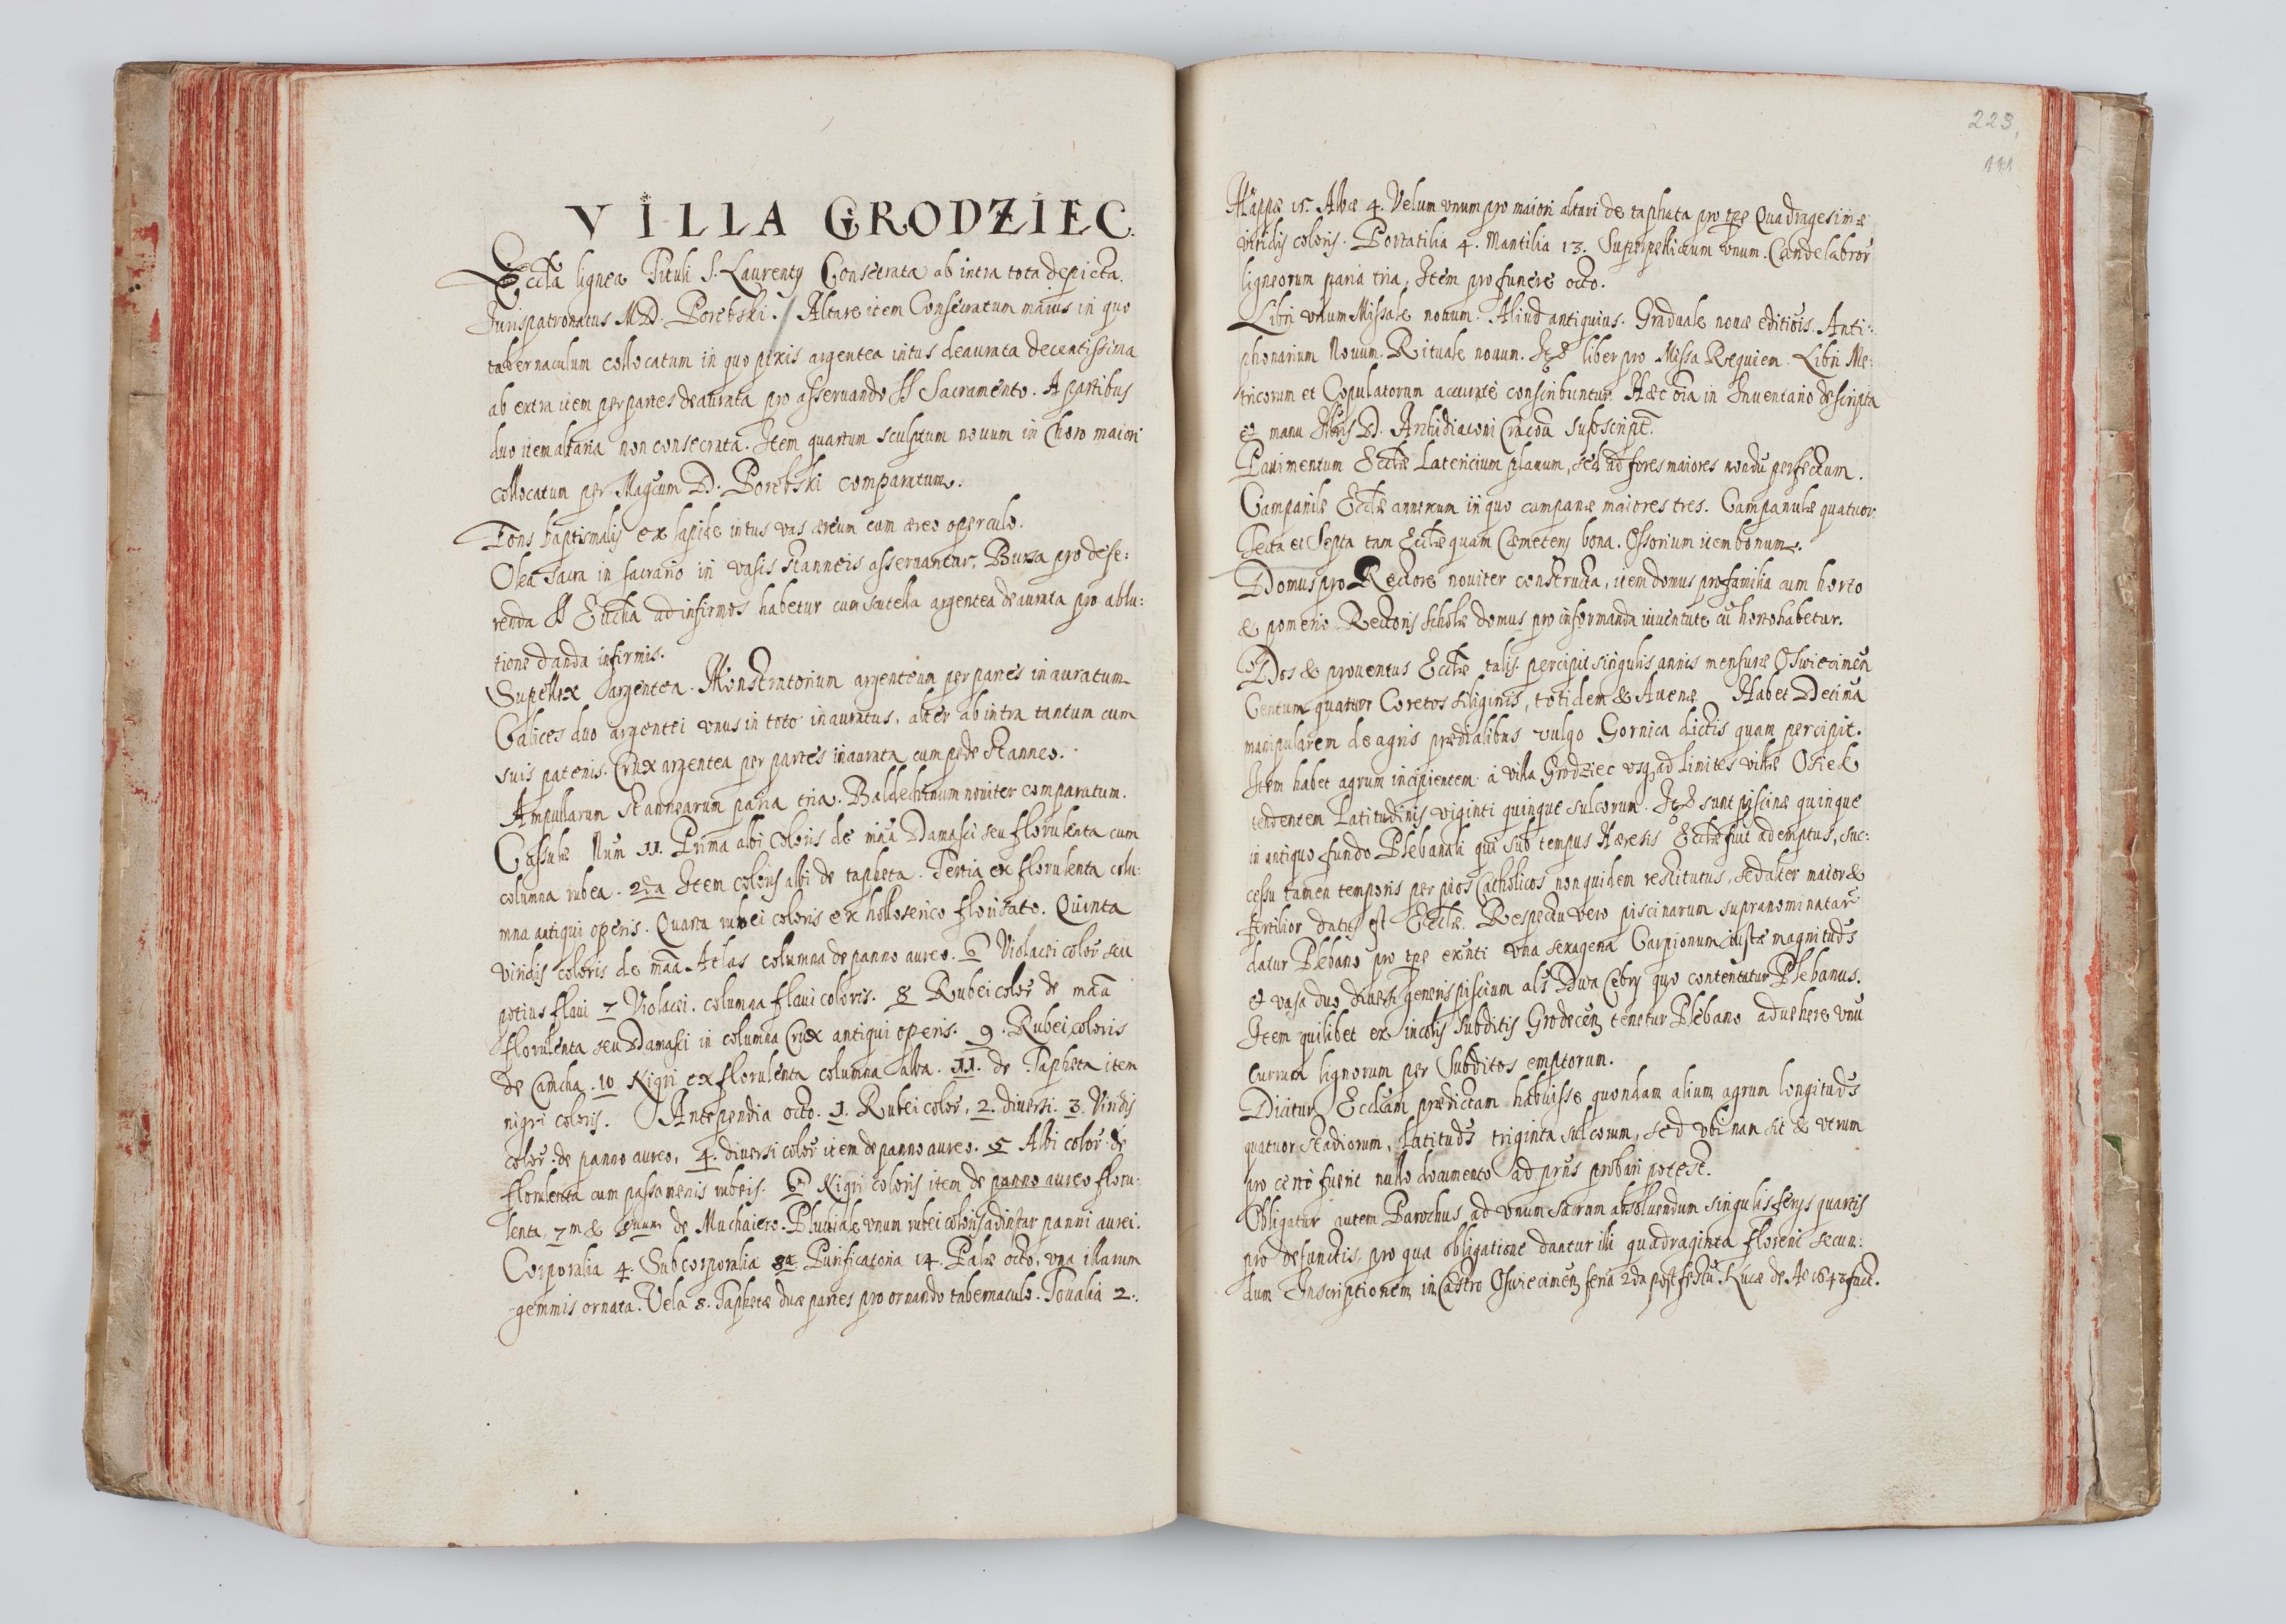 VILLA GRODZIEC.
Eccla lignea Tituli S. Laurentij Consecrata ab intra tota depicta.
Jurispatronatus MD. Porębski. / Altare item Consecratum maius in quo
tabernaculum collocatum in quo pixis argentea intus deaurata decentissima
ab extra item per partes deaurata pro asservando SS Sacramento. A partibus
duo item altaria non consecrata. Item quartum sculptum novum in Choro maiori
collocatum per Magcum D. Porębski comparatum.
Fons baptismalis ex lapide intus vas æreum cum æreo operculo.
Olea Sacra in sacrario in vasis stanneis asservantur. Bursa pro defe:
renda SS Euchia ad infirmos habetur cum scutella argentea deaurata pro ablu:
tione danda infirmis.
Supellex argentea. Monstratorium argenteum per partes inauratum.
Calices duo argentei unus in toto inauratus, alter ab intra tantum cum
suis patenis. Crux argentea per partes inaurata cum pede stanneo.
Ampullarum stannearum paria tria. Baldechinum noviter comparatum.
Casulæ Num 11. Prima albi coloris de maa Damasci seu florulenta cum
columna rubea. 2da Item coloris albi de tapheta. Tertia ex florulenta colu:
mna antiqui operis. Quarta rubei coloris ex holloserico floridato. Quinta
viridis coloris de maa Atlas columna de panno aureo. 6 Violacei color seu
potius flavi 7 Violacei. columna flavi coloris. 8 Rubei color de maa
florulenta seu Damasci in columna Crux antiqui operis. 9. Rubei coloris
de Camcha. 10 Nigri ex florulenta columna alba. 11. de Tapheta item
nigri coloris. Antependia octo. 1. Rubei color, 2. diversi. 3. Viridis
color. de panno aureo, 4. diversi color item de panno aureo. 5 Albi color de
florulenta cum passamenis rubeis. 6 Nigri coloris item de panno aureo floru:
lenta, 7m & 8vum de Muchaiero. Pluviale unum rubei coloris ad instar panni aurei.
Corporalia 4. Subcorporalia 3a Purificatoria 14. Palæ octo, una illarum
gemmis ornata. Vela 8. Taphetæ duæ partes pro ornando tabernaculo. Toualia 2.
223,
111
Mappæ 15. Albæ 4. Velum unum pro maiori altari de taphata pro tpe Quadragesimæ
viridis coloris. Portatilia 4. Mantilia 13. Superpelliceum unum. Candelabror
ligneorum paria tria, Item pro funere octo.
Libri unum Missale novum. Aliud antiquius. Graduale novæ editiois. Anti:
phonarium Novum. Rituale novum. Itd liber pro Missa Requiem. Libri Me:
tricorum et Copulatorum accurate conscribuntur. Hæc oia in Inventario descripta
et manu D. Archidiaconi Cracou subscript.
Pavimentum Eccliæ Latericium planum, sed ad fores maiores nondu perfectum.
Campanile Eccliæ annexum in quo campanæ maiores tres. Campanulæ quatuor.
Tecta et Septa tam Eccliæ quam Cæmeterij bona. Ossorium item bonum.
Domus pro Rectore noviter constructa, item domus pro familia cum horto
& pomerio Rectoris Scholæ domus pro informanda iuventute cu horto habetur.
Dos & proventus Eccliæ talis. percipit singulis annis mensuræ Oswiecimen
Centum quatuor Coretos siliginis, totidem & Avenæ. Habet Decima
manipularem de agris prædialibus vulgo Gornica dictis quam percipit.
Item habet agrum incipientem a villa Grodziec usq ad limites villæ Osiek
tendentem Latitudinis viginti quinque sulcorum. Itd sunt piscinæ quinque
in antiquo fundo Plebanali qui sub tempus Hæresis Eccliæ fuit ademptus, suc:
cessu tamen temporis per pios Catholicos non quidem restitutus, sed alter maior &
fertilior datus est Eccliæ. Respectu vero piscinarum supranominatar
datur Plebano pro tpe exnti una sexagena Carpionum iustæ magnituds
et vasa duo diversi generis piscium als Dwa Cebry quo contentatur Plebanus.
Item quilibet ex incolis subditis Grodecen tenetur Plebano advehere unu
currum lignorum per Subditos emptorum.
Dicitur Eccliam prædictam habuisse quondam alium agrum longituds
quatuor stadiorum, Latituds triginta sulcorum, sed ubinam sit & utrum
pro certo fuerit nullo documento ad prns probari potest.
Obligatur autem Parochus ad unum Sacrum absolvendum singulis ferijs quartis
pro defunctis, pro qua obligatione dantur illi quadraginta floreni secun:
dum Inscriptionem in Castro Oswiecimen feria 2da post festu Lucæ de Ao 1643 fact.